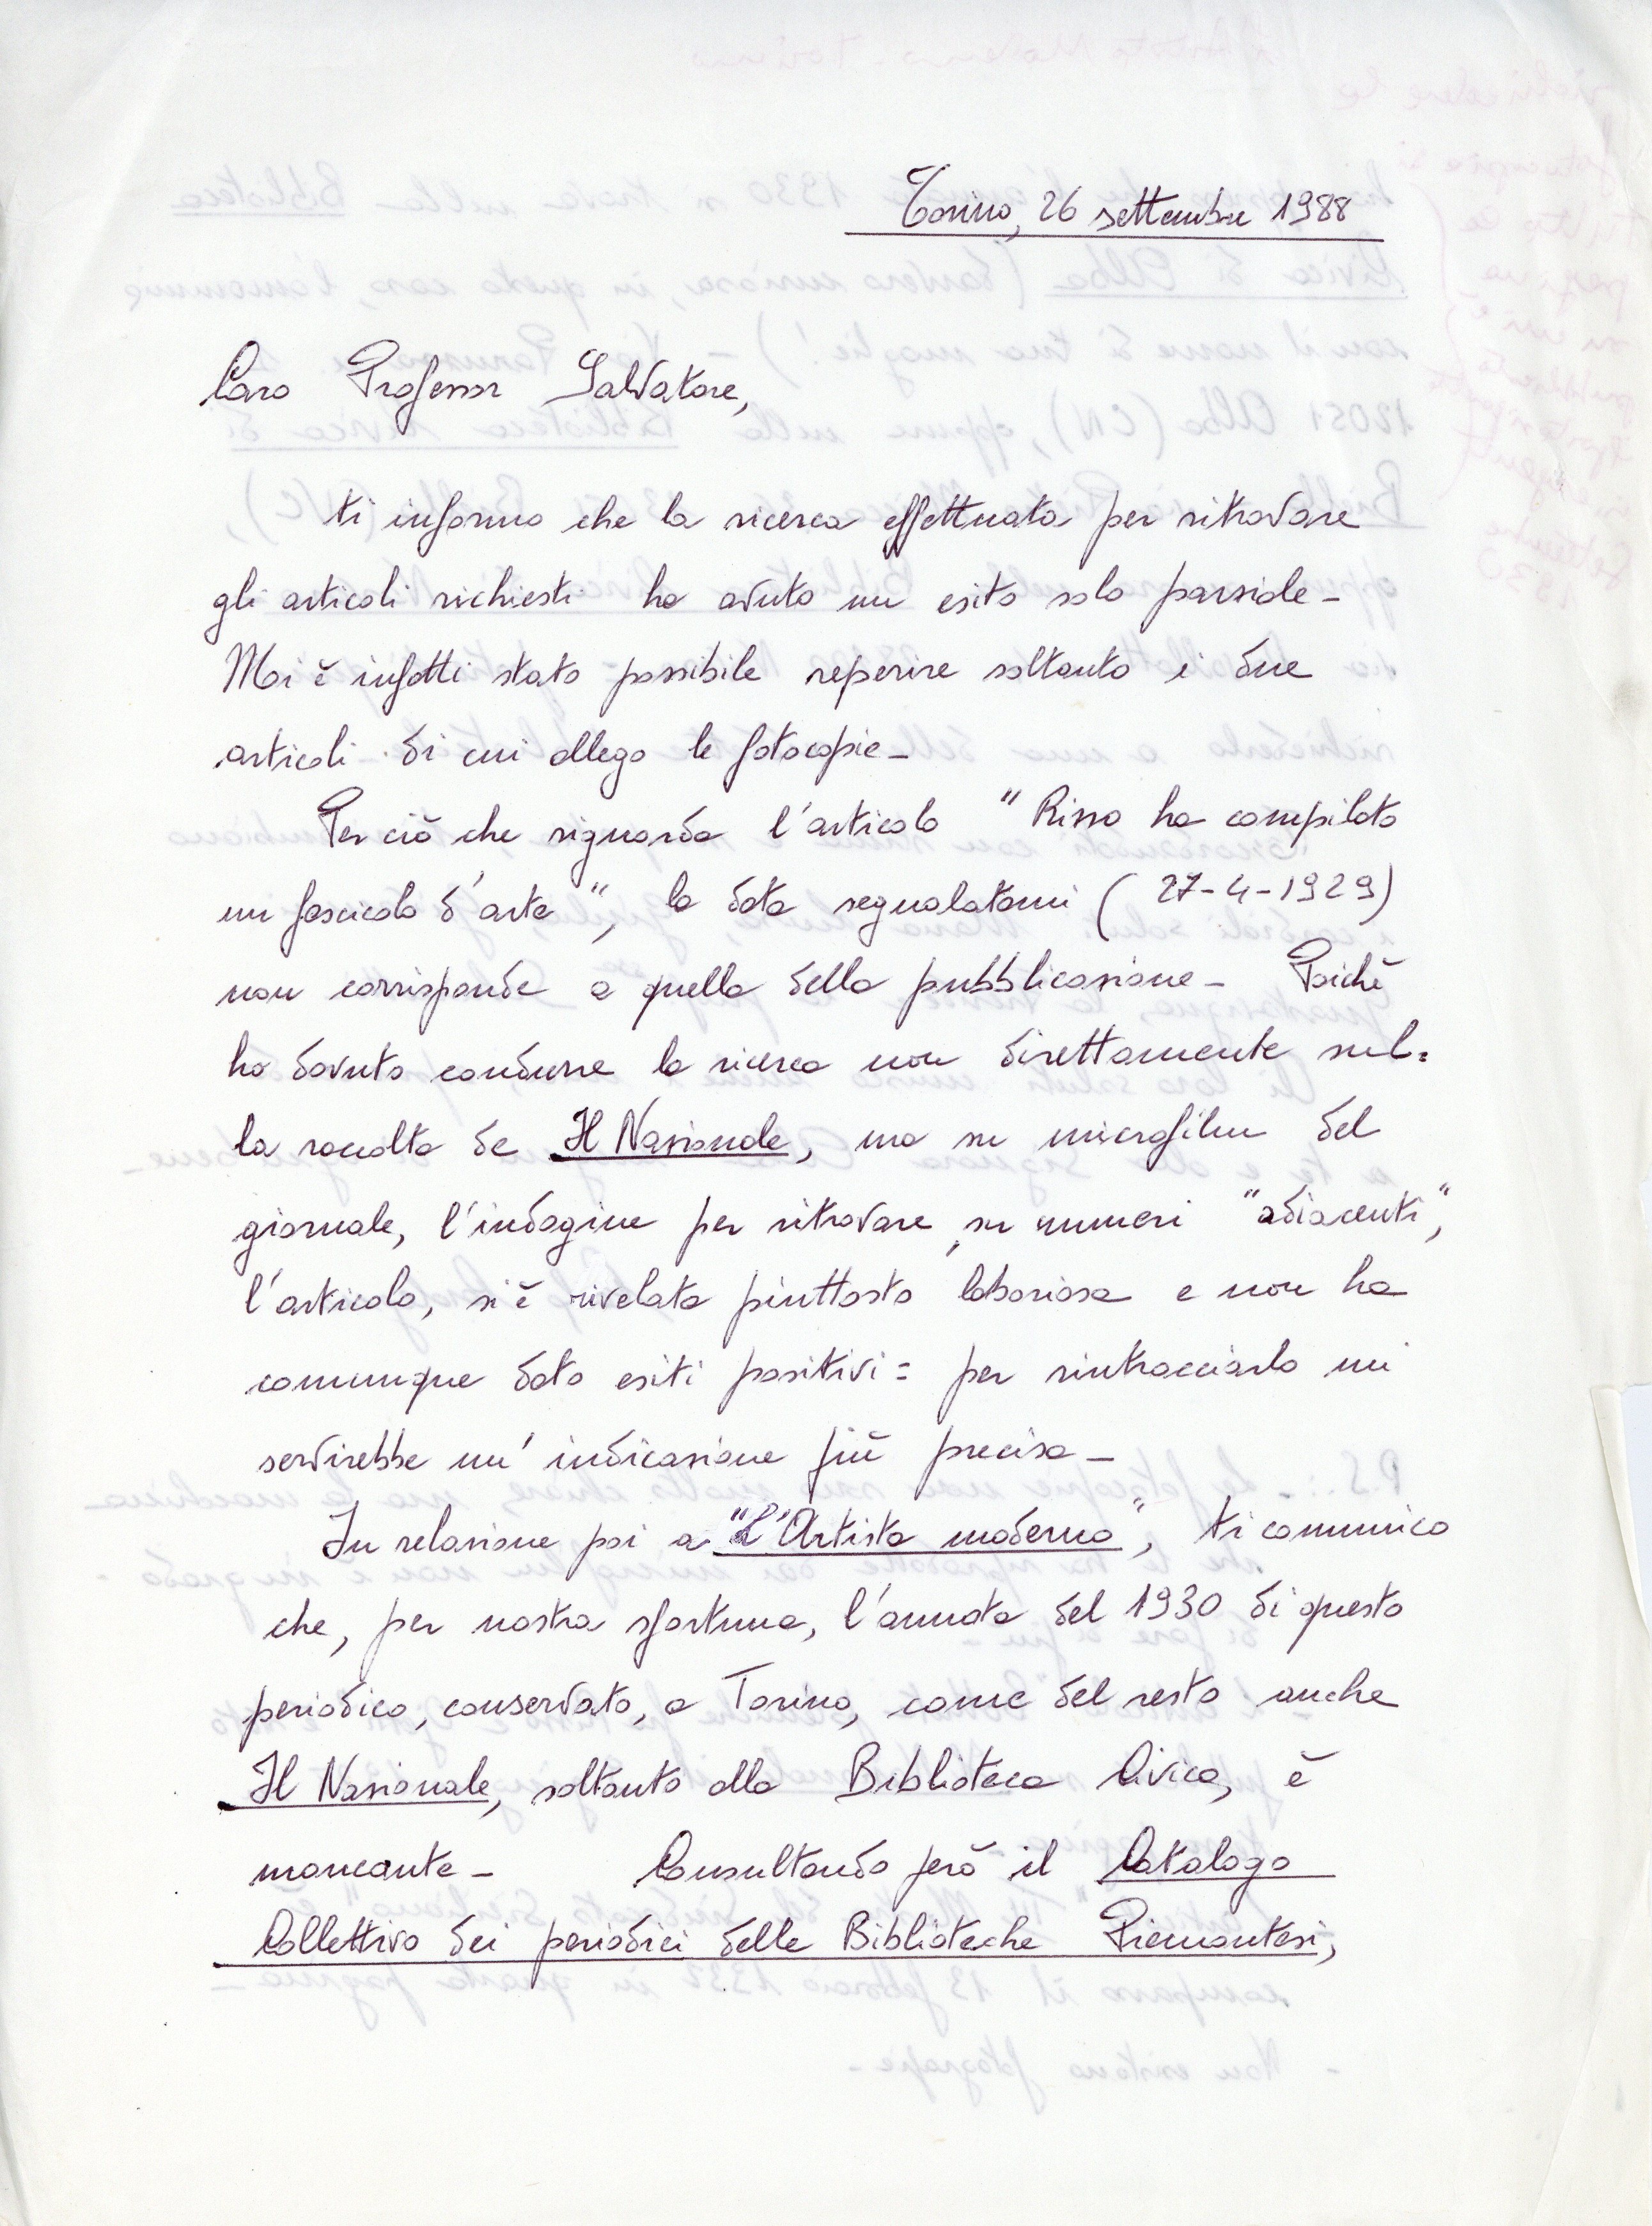 Torino, 26 settembre 1988
Caro Professor Salvatore,
ti informo che la ricerca effettuata per ritrovare
gli articoli richiesti ha avuto un esito solo parziale -
Mi è infatti stato possibile reperire soltanto i due
articoli di cui allego le fotocopie -
Per ciò che riguarda l'articolo "Risso ha compilato
un fascicolo d'arte", la data segnalatami (27-4-1929)
non corrisponde a quella della pubblicazione - Poichè
ho dovuto condurre la ricerca non direttamente sul=
la raccolta de Il Nazionale, ma su microfilm del
giornale, l'indagine per ritrovare, su numeri "adiacenti",
l'articolo, si è rivelata piuttosto laboriosa e non ha
comunque dato esiti positivi: per rintracciarlo mi
servirebbe un'indicazione più precisa -
In relazione poi a "L'Artista moderno", ti comunico
che, per nostra sfortuna, l'annata del 1930 di questo
periodico, conservato, a Torino, come del resto anche
Il Nazionale, soltanto alla Biblioteca Civica, è
mancante - Consultando però il Catalogo
Collettivo dei periodici delle Biblioteche Piemontesi,